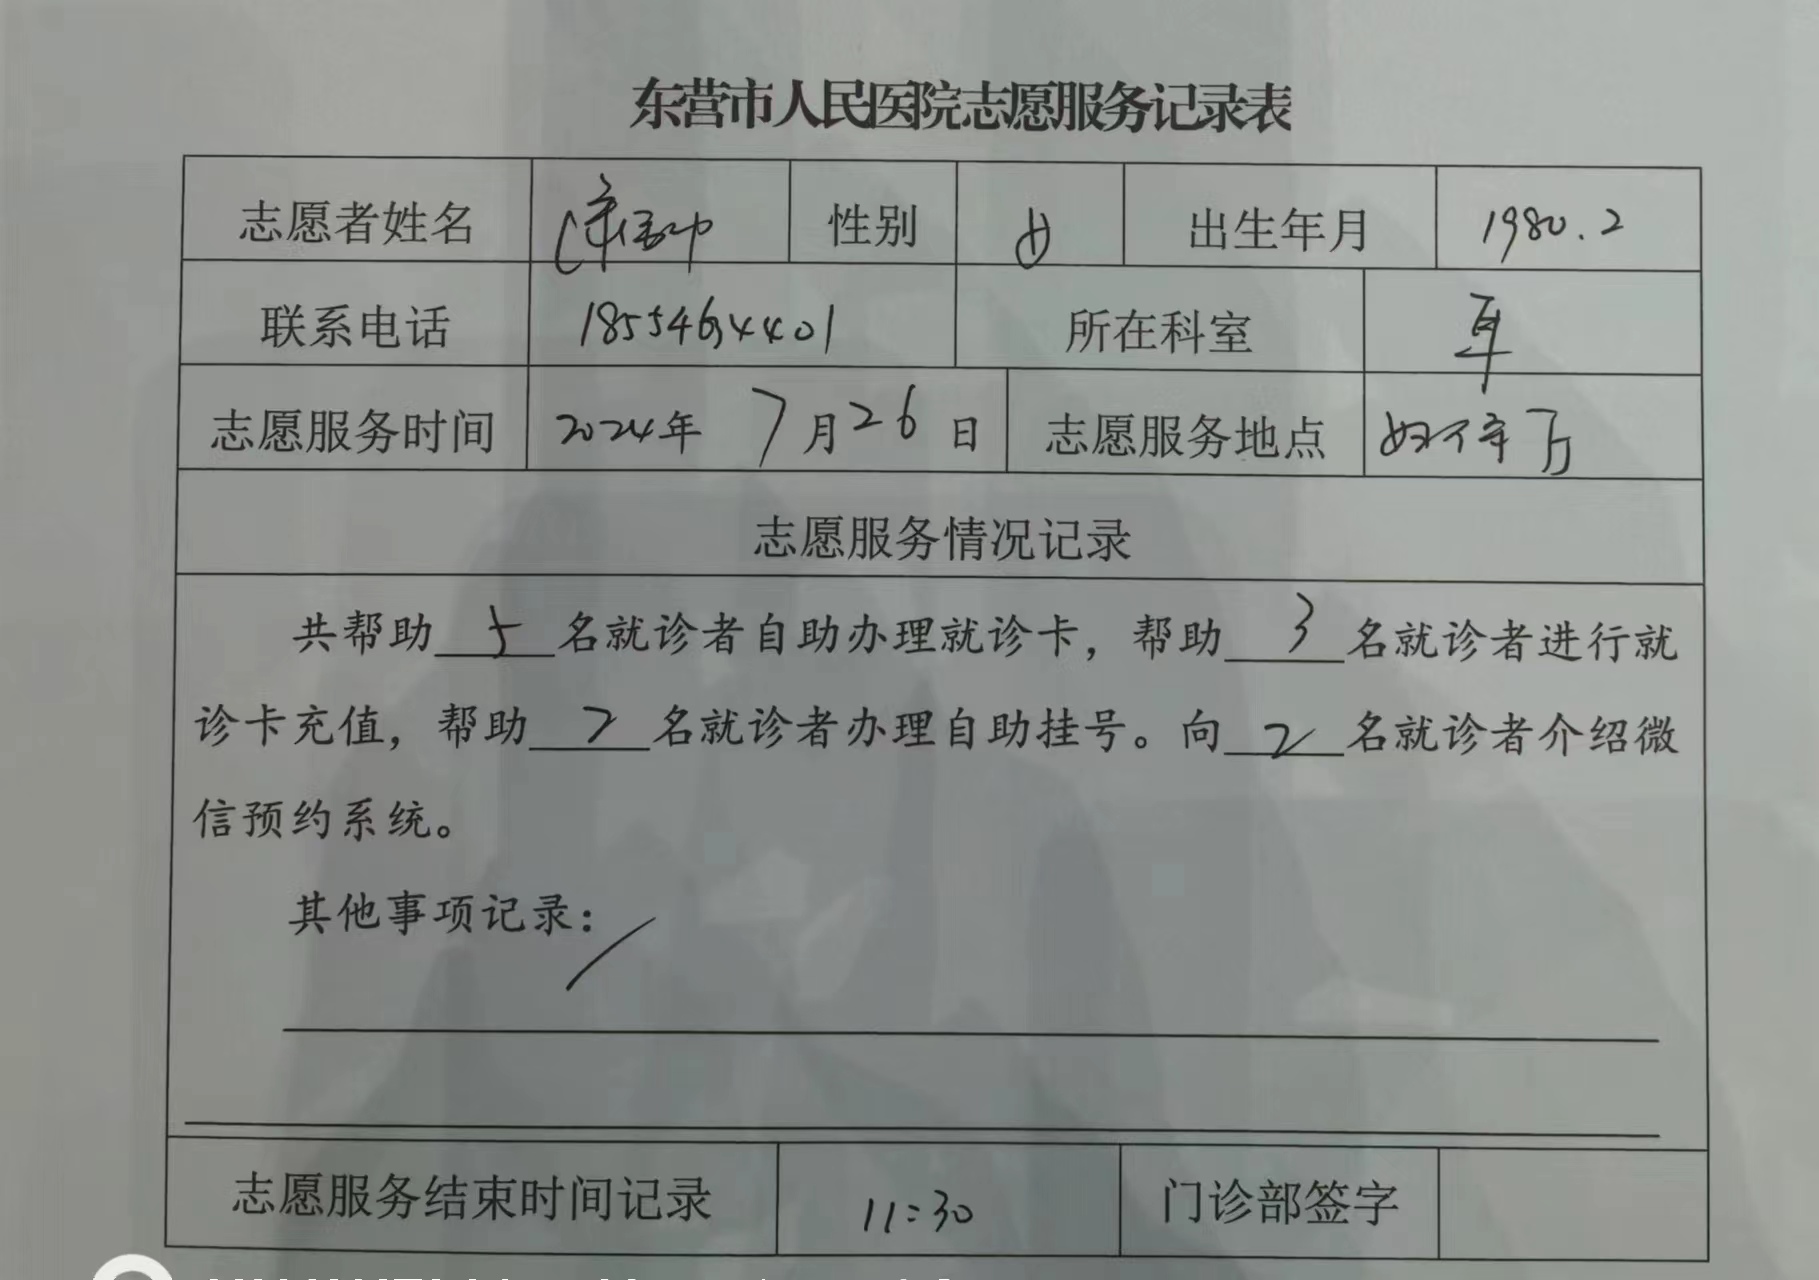 东营市人民医院志愿服务记录表
志愿者姓名 性别 女 出生年月 1980.2
联系电话 所在科室
志愿服务时间 2024年 7月26日 志愿服务地点
志愿服务情况记录
共帮助 5 名就诊者自助办理就诊卡，帮助 3 名就诊者进行就
诊卡充值，帮助 2 名就诊者办理自助挂号。向 2 名就诊者介绍微
信预约系统。
其他事项记录：/
志愿服务结束时间记录 11:30 门诊部签字